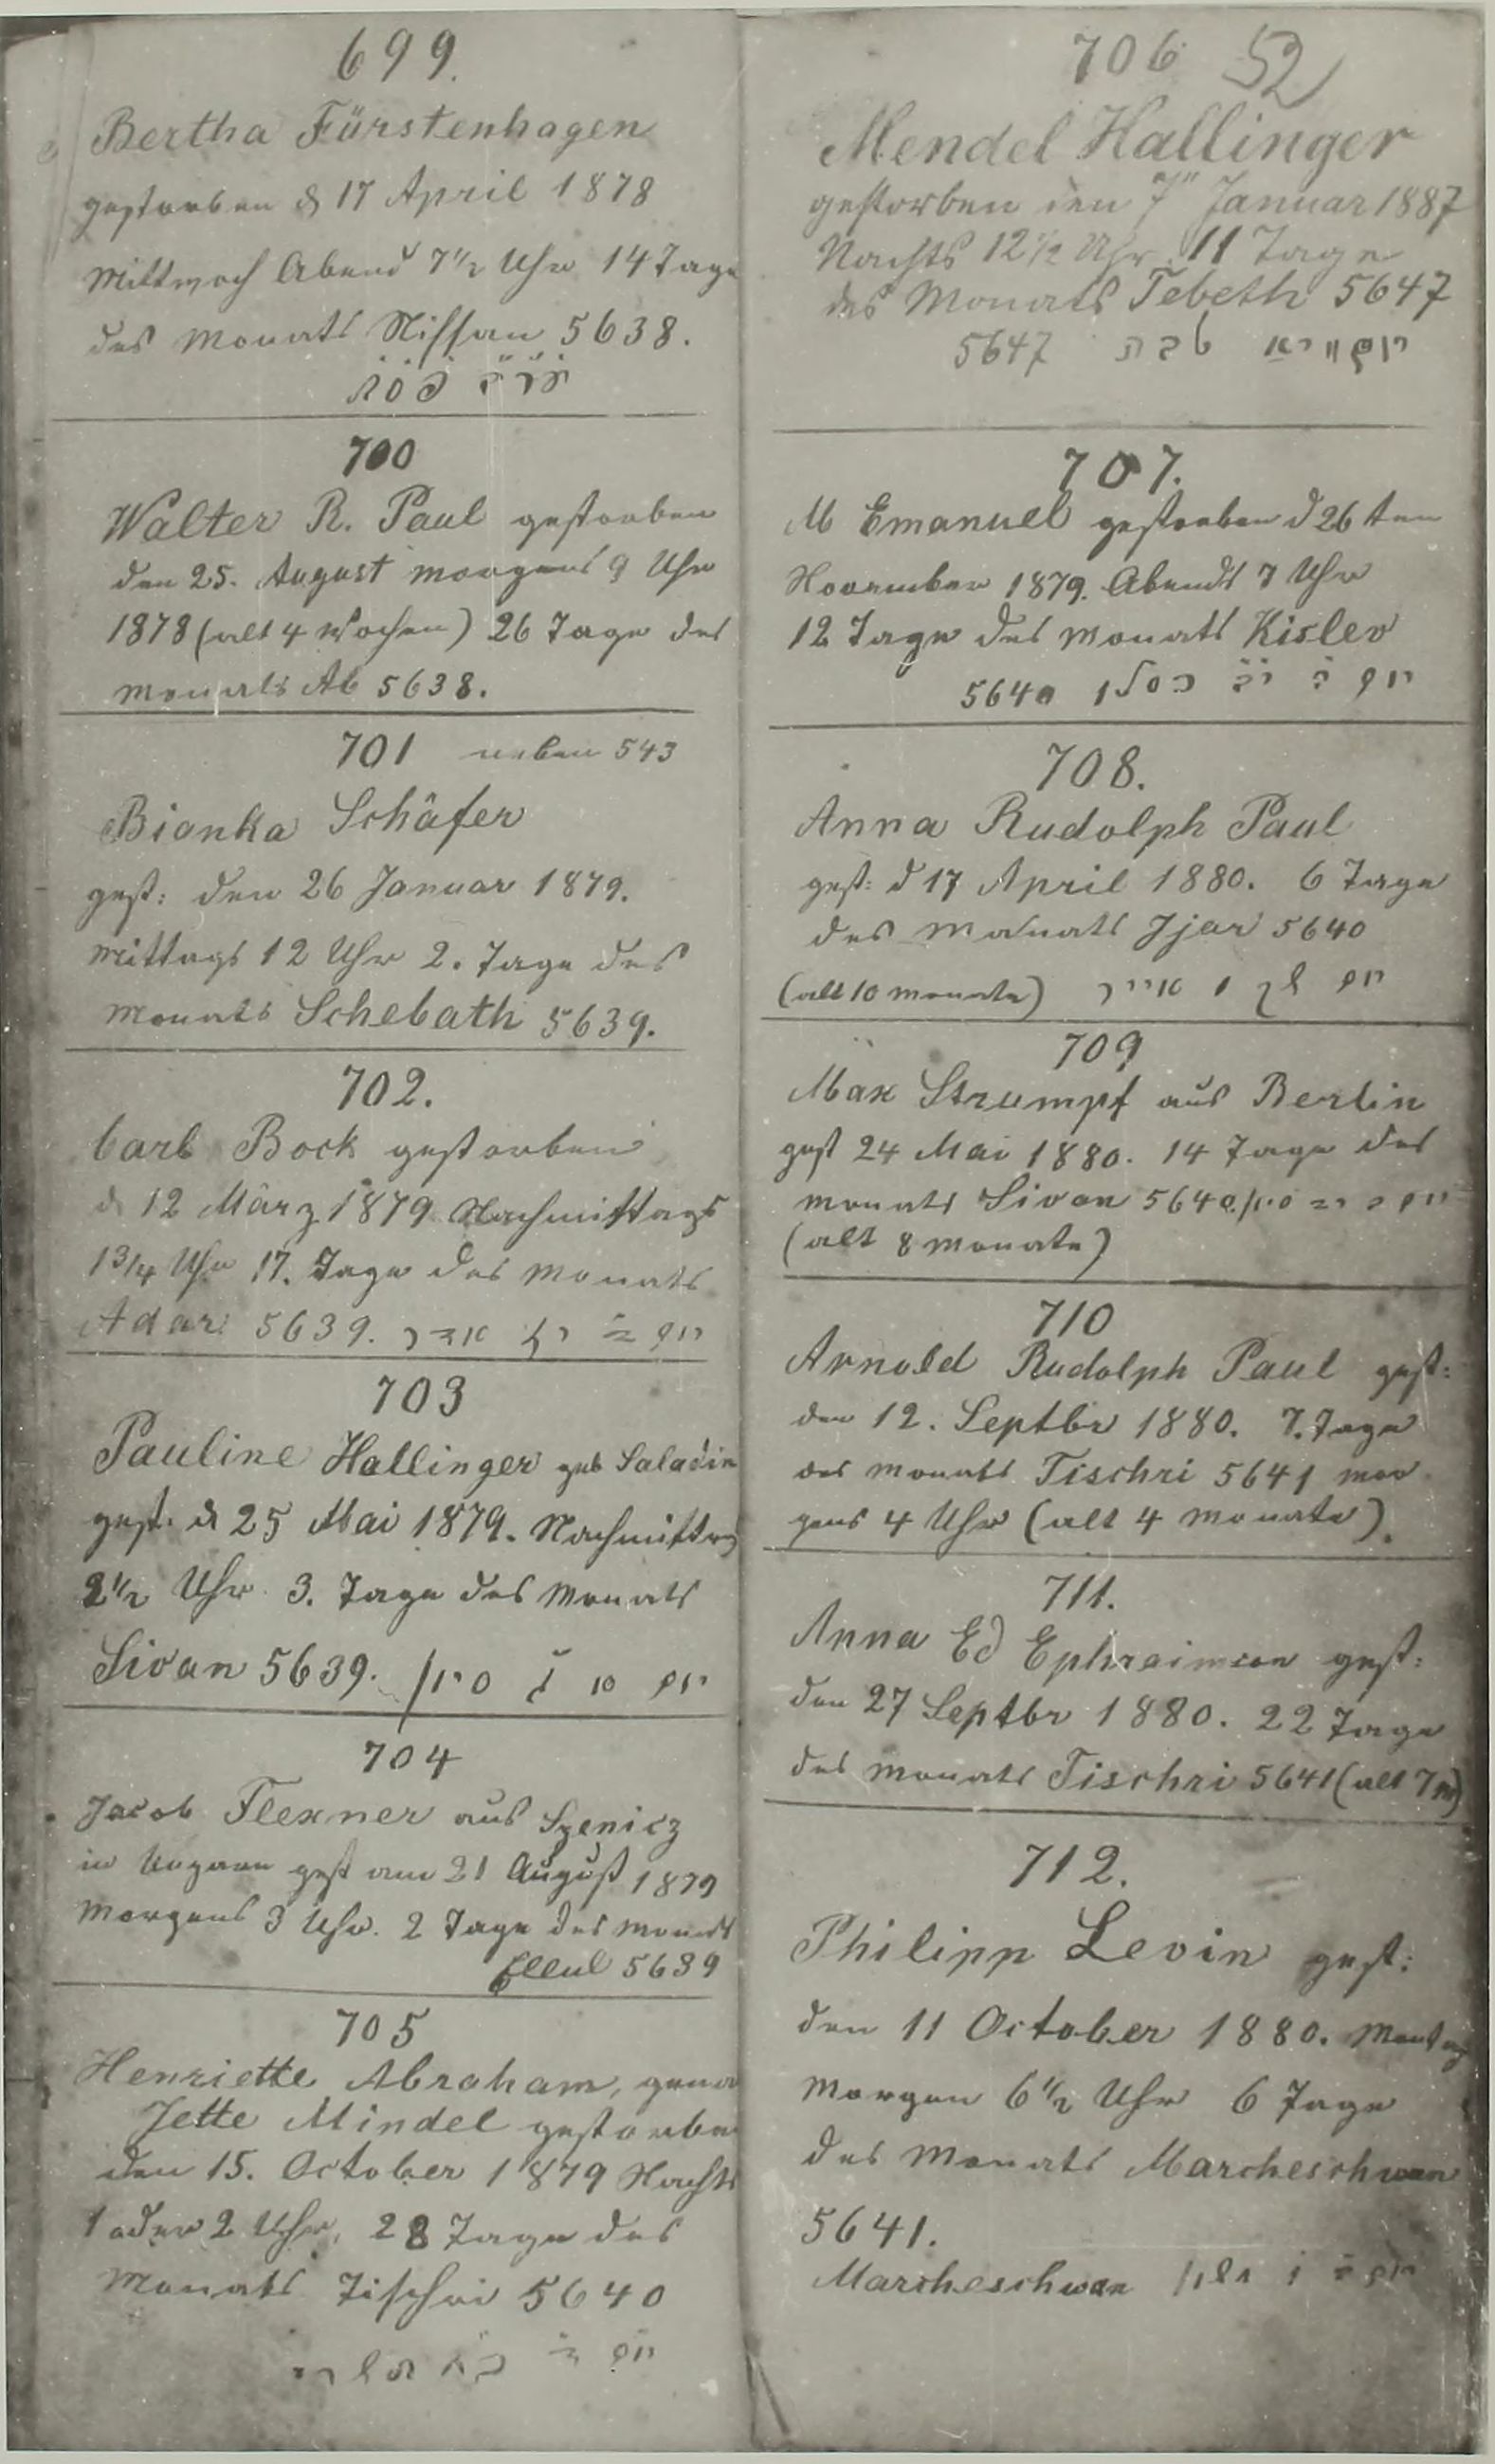 699.
Bertha Fürstenhagen
gestorben d 17 April 1878
Mittwoch Abend 7 1/2 Uhr 14 Tage
des Monats Nissan 5638.
ערב פסח
700
Walter R. Paul gestorben
den 25. August morgens 9 Uhr
1878 (alt 4 Wochen) 26 Tage des
Monats Ab 5638.
701 neben 543
Bianka Schäfer
gest: den 26 Januar 1879.
Mittags 12 Uhr 2. Tage des
Monats Schebath 5639.
702.
Carl Bock gestorben
d. 12 März 1879 Nachmittags
1 3/4 Uhr 17. Tage des Monats
Adar 5639. יום ד יז אדר
703
Pauline Hallinger geb Saladin
gest. d 25 Mai 1879. Nachmittag
2 1/2 Uhr 3. Tage des Monats
Sivan 5639. יום א ג סיון
704
Jacob Flexner aus Szenicz
in Ungarn gest am 21 August 1879
Morgens 3 Uhr. 2 Tage des Monats
Ellul 5639
705
Henriette Abraham, gena
Jette Mindel gestorbe
den 15. October 1879 Nachts
1 oder 2 Uhr, 28 Tage des
Monats Tischri 5640
יום ד כח תשרי
706 52
Mendel Hallinger
gestorben den 7" Januar 1887
Nachts 12 1/2 Uhr. 11 Tage
des Monats Tebeth 5647
5647 יום ו יא טבת
707.
M Emanuel gestorben d 26ten
November 1879. Abends 7 Uhr
12 Tage des Monats Kislev
5640 יום ד יב כסלו
708.
Anna Rudolph Paul
gest: d 17 April 1880. 6 Tage
des Monats Jjar 5640
(alt 10 Monate) יום שק ו אייר
709
Max Strumpf aus Berlin
gest 24 Mai 1880. 14 Tage des
Monats Sivan 5640. יום ב יד סיון
(alt 8 Monate)
710
Arnold Rudolph Paul gest:
den 12. Septbr 1880. 7. Tage
des Monats Tischri 5641 mor
gens 4 Uhr (alt 4 Monate).
711.
Anna Ed Ephraimson gest:
den 27 Septbr 1880. 22 Tage
des Monats Tischri 5641 (alt 7 M)
712.
Philipp Levin gest:
den 11 October 1880. Montag
Morgen 6 1/2 Uhr 6 Tage
des Monats Marcheschwan
5641.
Marcheschwan יום ב ו חשון